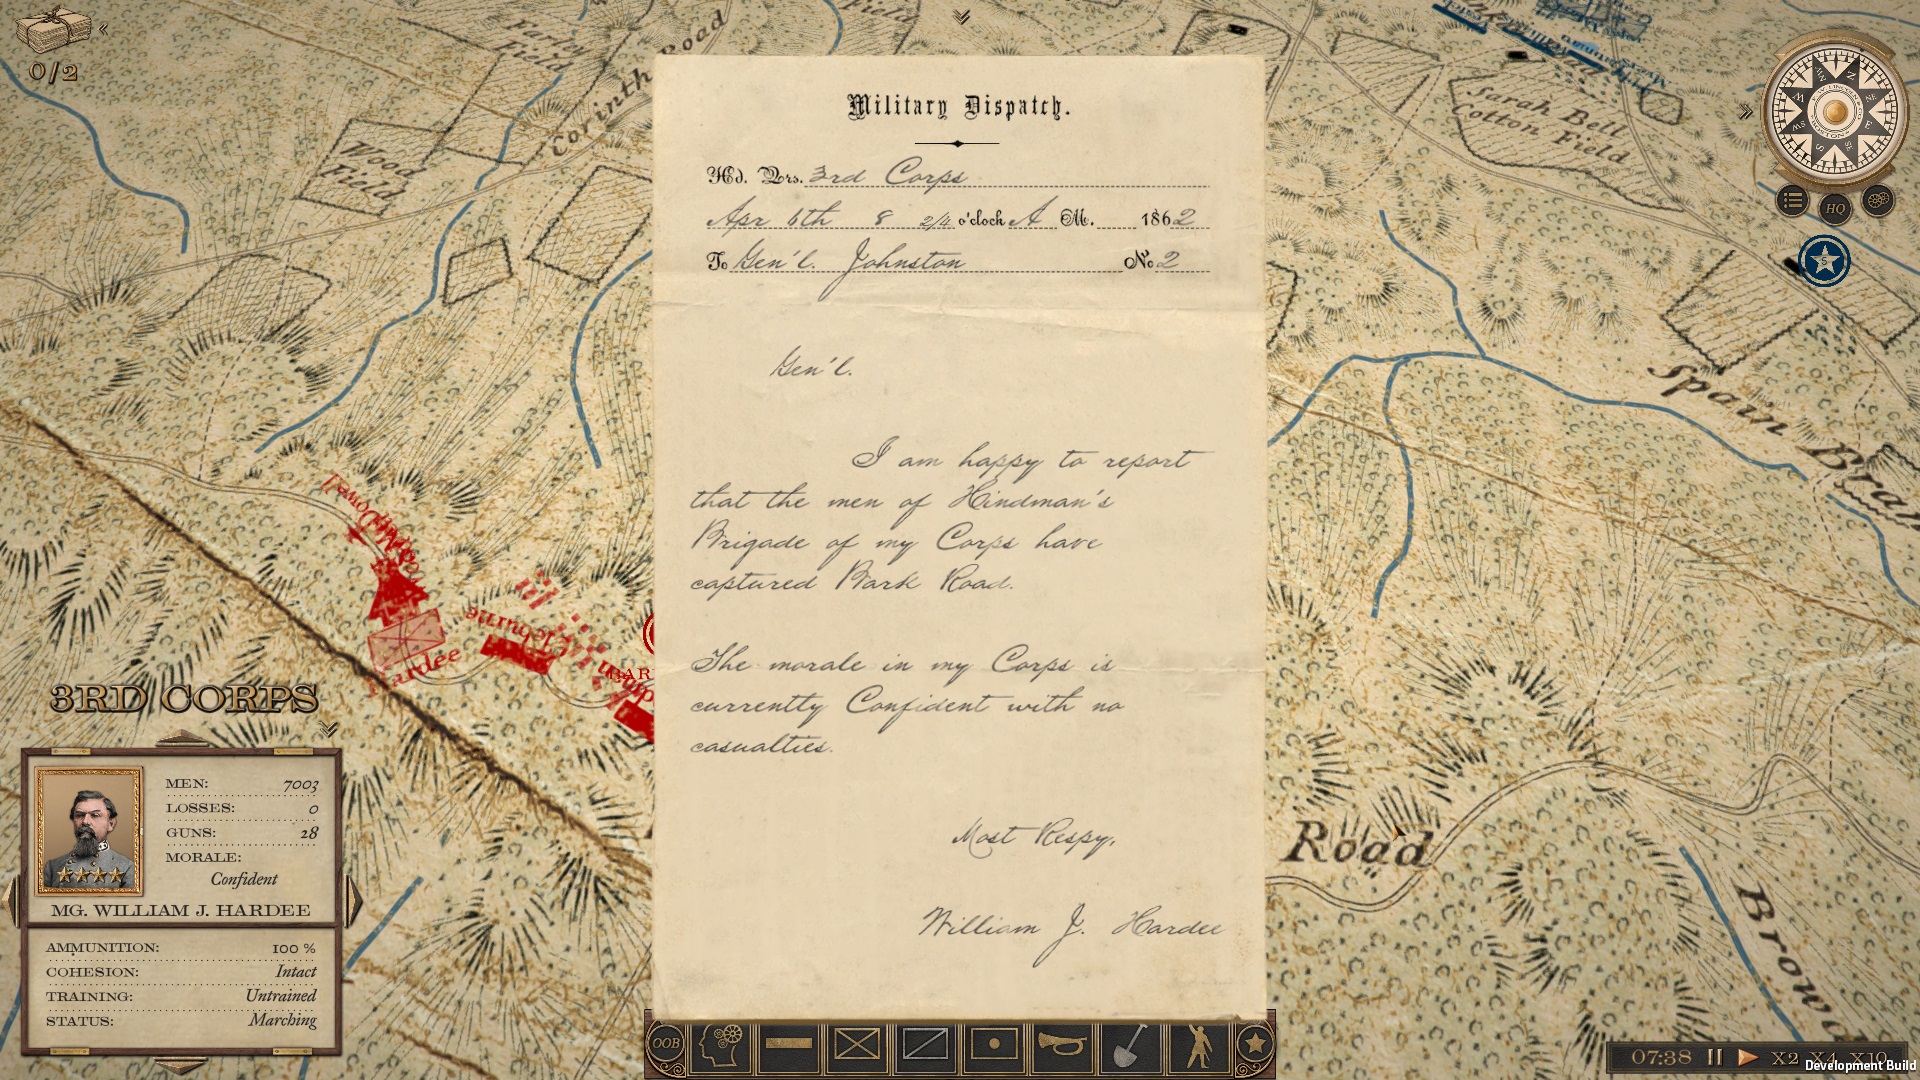 0/2
Wood
Field
Field
Field
Corinth Road
Sarah Bell
Cotton Field
Spain Bran
HQ
5
Military Dispatch.
Hd. Qrs. 3rd Corps
Apr 6th 8 2/4 o'clock A M. 1862
To Gen'l. Johnston No 2
Gen'l.
I am happy to report
that the men of Hindman's
Brigade of my Corps have
captured Bark Road.
The morale in my Corps is
currently Confident with no
casualties.
Most Respy,
William J. Hardee
Hardee
Cleburne
BAR
Road
Brown
3RD CORPS
MEN: 7003
LOSSES: 0
GUNS: 28
MORALE:
Confident
MG. WILLIAM J. HARDEE
AMMUNITION: 100 %
COHESION: Intact
TRAINING: Untrained
STATUS: Marching
OOB
07:38 X2 X4 X10
Development Build